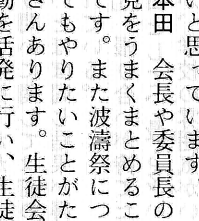 いと思っています。
本田　会長や委員長の
見をうまくまとめるこ
です。また波濤祭につ
てもやりたいことがた
さんあります。生徒会
動を活発に行い、生徒